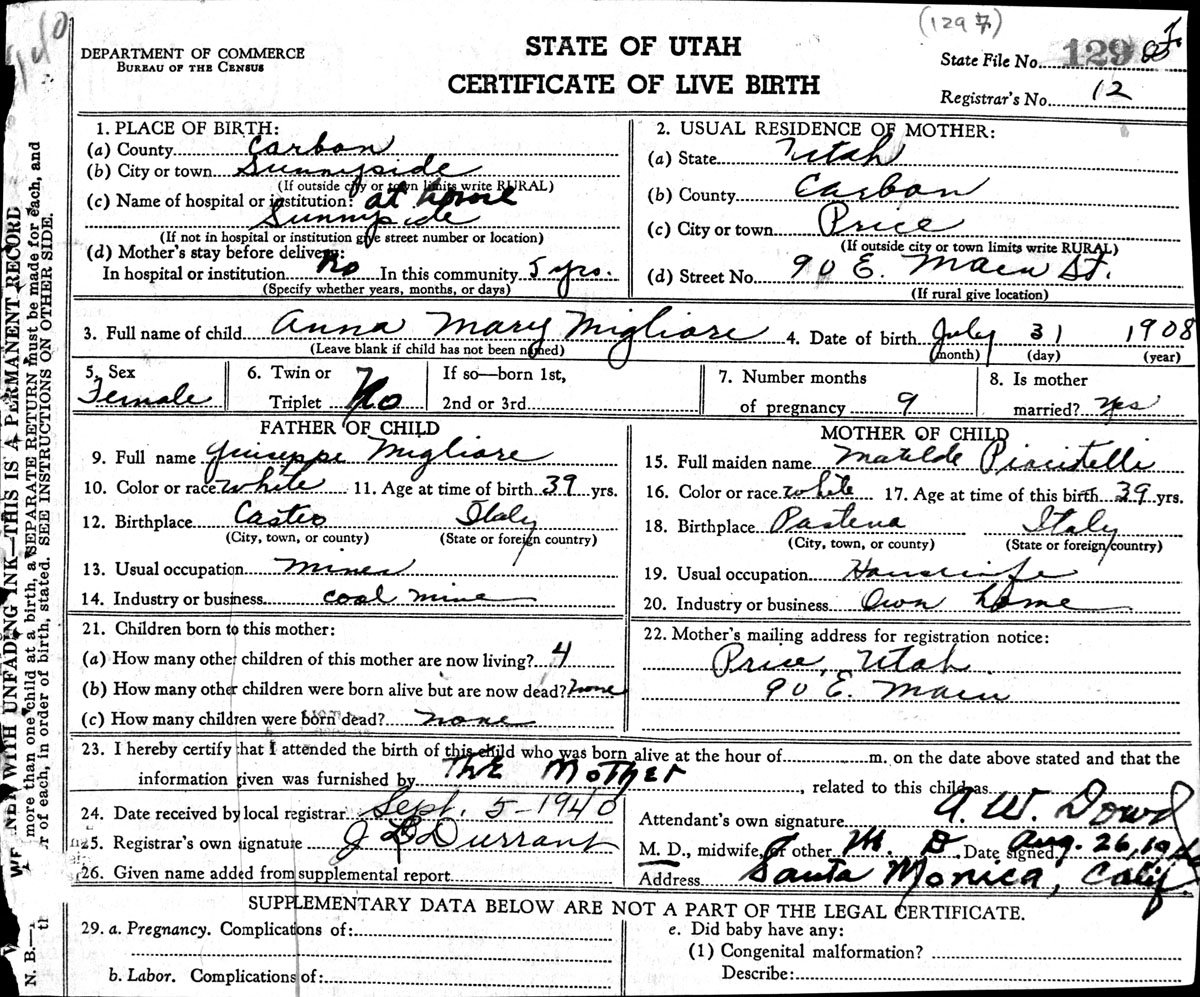 (1297)
DEPARTMENT OF COMMERCE
BUREAU OF THE CENSUS
STATE OF UTAH
CERTIFICATE OF LIVE BIRTH
State File No. 129
Registrar's No. 12
1. PLACE OF BIRTH:
(a) County Carbon
(b) City or town Sunnyside
(If outside city or town limits write RURAL)
(c) Name of hospital or institution: at home
Sunnyside
(If not in hospital or institution give street number or location)
(d) Mother's stay before delivery:
In hospital or institution No In this community 5 yrs.
(Specify whether years, months, or days)
2. USUAL RESIDENCE OF MOTHER:
(a) State Utah
(b) County Carbon
(c) City or town Price
(If outside city or town limits write RURAL)
(d) Street No. 90 E. Main St.
(If rural give location)
3. Full name of child Anna Mary Migliore 4. Date of birth July 31 1908
(Leave blank if child has not been named) (month) (day) (year)
5. Sex 6. Twin or If so—born 1st, 7. Number months 8. Is mother
Female Triplet No 2nd or 3rd of pregnancy 9 married? Yes
FATHER OF CHILD
9. Full name Giuseppe Migliore
10. Color or race white 11. Age at time of birth 39 yrs.
12. Birthplace Italy
(City, town, or county) (State or foreign country)
13. Usual occupation Miner
14. Industry or business coal mine
MOTHER OF CHILD
15. Full maiden name Matilde Piacitelli
16. Color or race white 17. Age at time of this birth 39 yrs.
18. Birthplace Pastena Italy
(City, town, or county) (State or foreign country)
19. Usual occupation Housewife
20. Industry or business Own home
21. Children born to this mother:
(a) How many other children of this mother are now living? 4
(b) How many other children were born alive but are now dead? none
(c) How many children were born dead? none
22. Mother's mailing address for registration notice:
Price, Utah
90 E. Main
23. I hereby certify that I attended the birth of this child who was born alive at the hour of m. on the date above stated and that the
information given was furnished by The Mother, related to this child as
24. Date received by local registrar Sept. 5-1940
25. Registrar's own signature J L Durrant
26. Given name added from supplemental report
Attendant's own signature A. W. Dowd
M. D., midwife, or other M. D. Date signed Aug. 26, 1940
Address Santa Monica, Calif
SUPPLEMENTARY DATA BELOW ARE NOT A PART OF THE LEGAL CERTIFICATE.
29. a. Pregnancy. Complications of:
b. Labor. Complications of:
e. Did baby have any:
(1) Congenital malformation?
Describe:
WITH UNFADING INK—THIS IS A PERMANENT RECORD
N. B.— more than one child at a birth, a SEPARATE RETURN must be made for each, and
of each, in order of birth, stated. SEE INSTRUCTIONS ON OTHER SIDE.